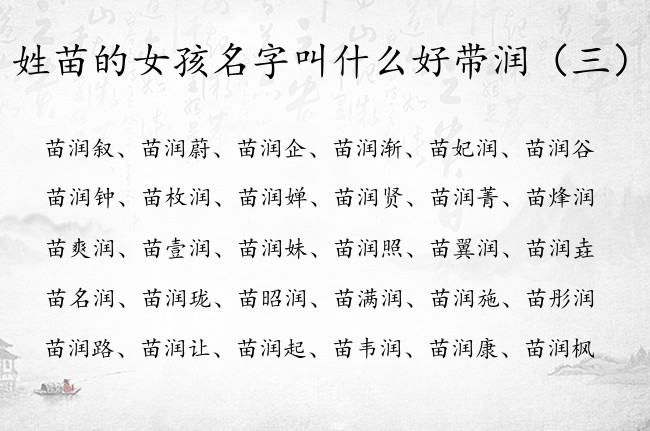 姓苗的女孩名字叫什么好带润（三）
苗润叙、苗润蔚、苗润企、苗润渐、苗妃润、苗润谷
苗润钟、苗枚润、苗润婵、苗润贤、苗润菁、苗烽润
苗爽润、苗壹润、苗润妹、苗润照、苗翼润、苗润垚
苗名润、苗润珑、苗昭润、苗满润、苗润施、苗彤润
苗润路、苗润让、苗润起、苗韦润、苗润康、苗润枫